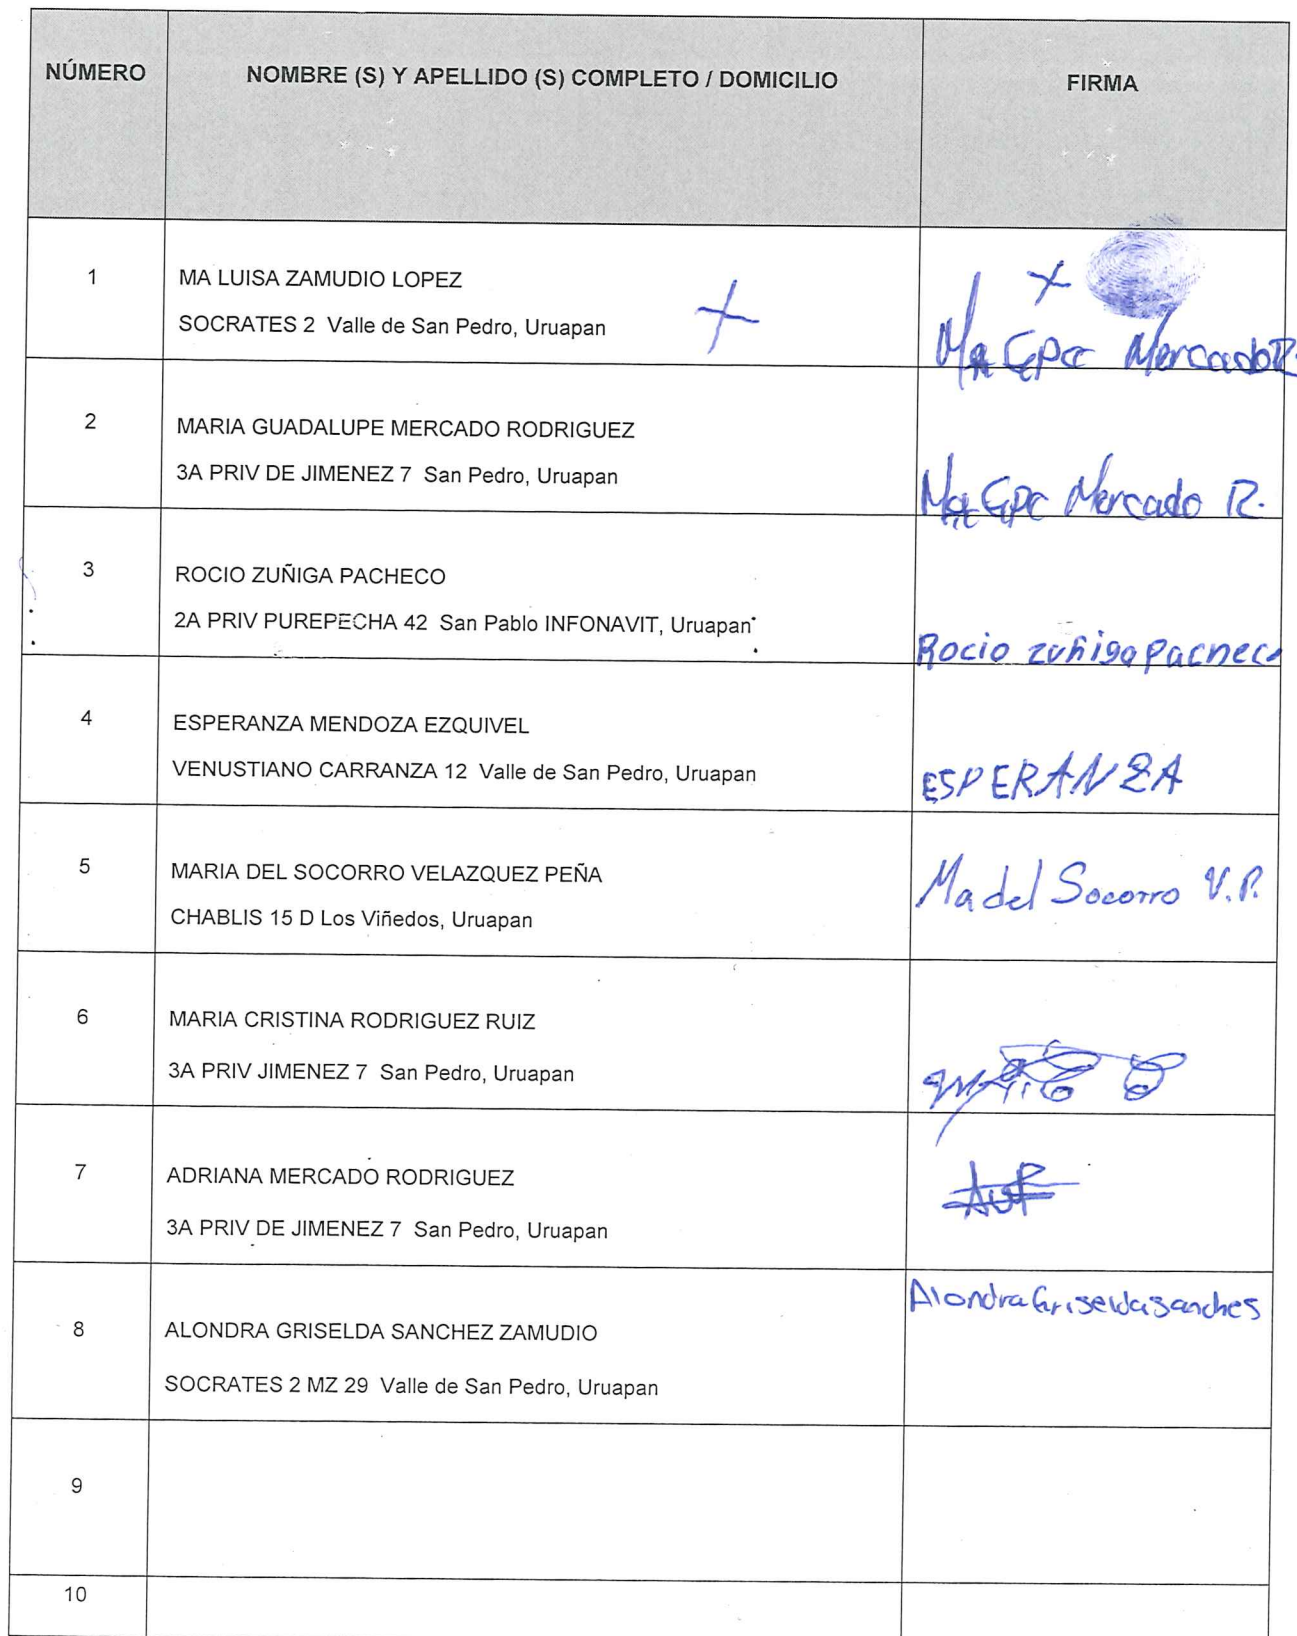 NÚMERO NOMBRE (S) Y APELLIDO (S) COMPLETO / DOMICILIO FIRMA
1 MA LUISA ZAMUDIO LOPEZ
SOCRATES 2 Valle de San Pedro, Uruapan
Ma Gpe Mercado R.
2 MARIA GUADALUPE MERCADO RODRIGUEZ
3A PRIV DE JIMENEZ 7 San Pedro, Uruapan
Ma Gpe Mercado R.
3 ROCIO ZUÑIGA PACHECO
2A PRIV PUREPECHA 42 San Pablo INFONAVIT, Uruapan
Rocio zuñiga Pacheco
4 ESPERANZA MENDOZA EZQUIVEL
VENUSTIANO CARRANZA 12 Valle de San Pedro, Uruapan
ESPERANZA
5 MARIA DEL SOCORRO VELAZQUEZ PEÑA
Ma del Socorro V.P.
CHABLIS 15 D Los Viñedos, Uruapan
6 MARIA CRISTINA RODRIGUEZ RUIZ
3A PRIV JIMENEZ 7 San Pedro, Uruapan
7 ADRIANA MERCADO RODRIGUEZ
3A PRIV DE JIMENEZ 7 San Pedro, Uruapan
Alondra Griselda Sanches
8 ALONDRA GRISELDA SANCHEZ ZAMUDIO
SOCRATES 2 MZ 29 Valle de San Pedro, Uruapan
9
10